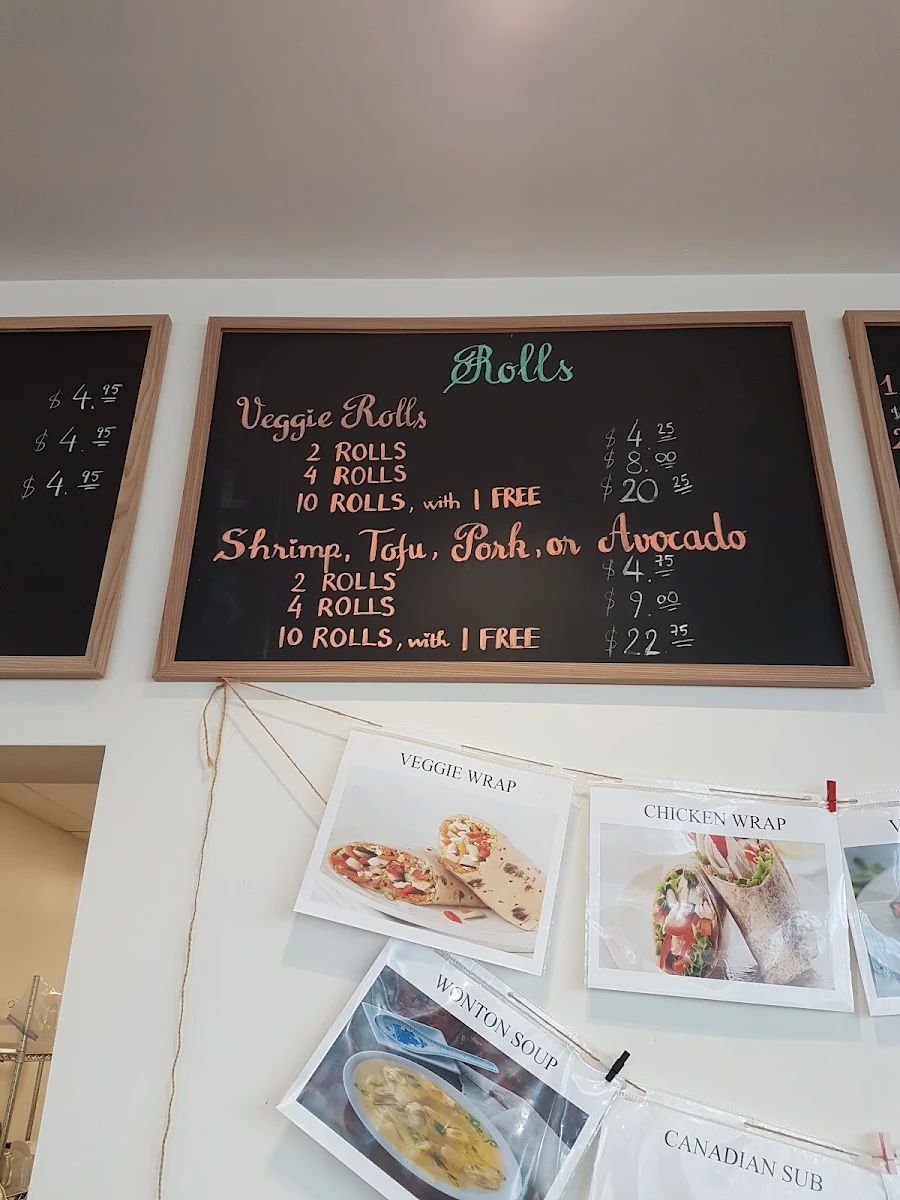 $ 4.95
$ 4.95
$ 4.95
Rolls
Veggie Rolls
2 ROLLS $ 4.25
4 ROLLS $ 8.00
10 ROLLS, with 1 FREE $ 20 25
Shrimp, Tofu, Pork, or Avocado
2 ROLLS $ 4.75
4 ROLLS $ 9.00
10 ROLLS, with 1 FREE $ 22.75
VEGGIE WRAP
CHICKEN WRAP
WONTON SOUP
CANADIAN SUB